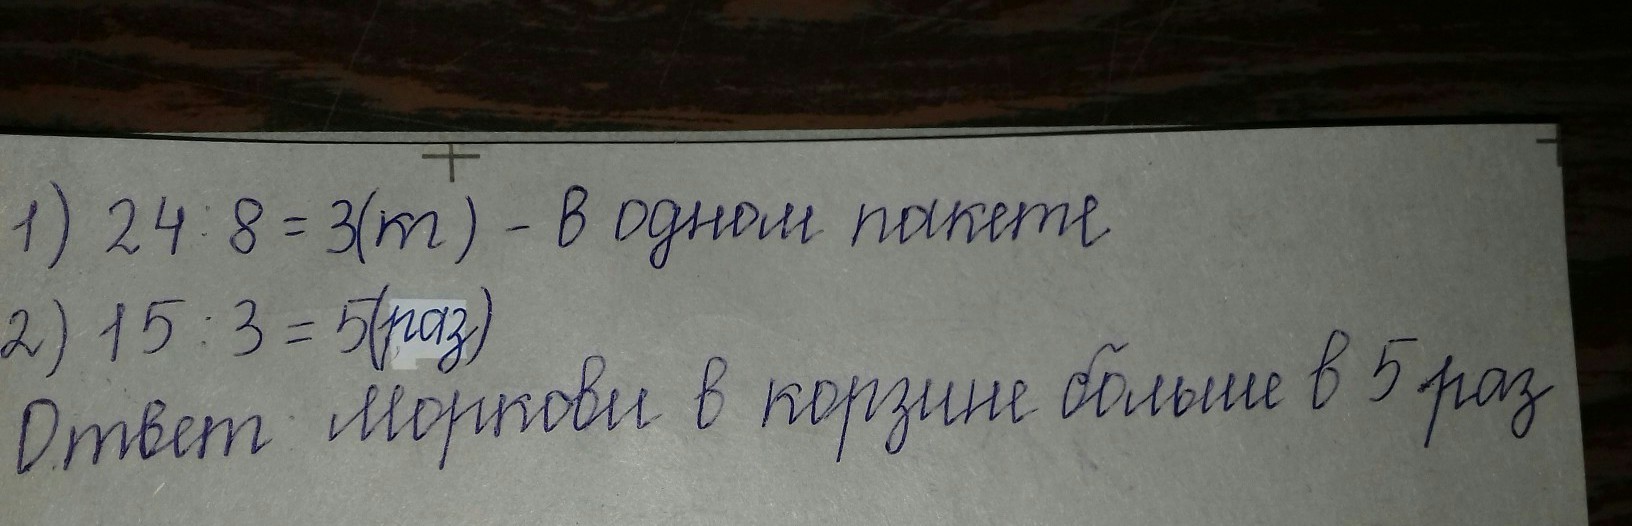 1) 24 : 8 = 3(кг) - в одном пакете
2) 15 : 3 = 5(раз)
Ответ: Моркови в корзине больше в 5 раз